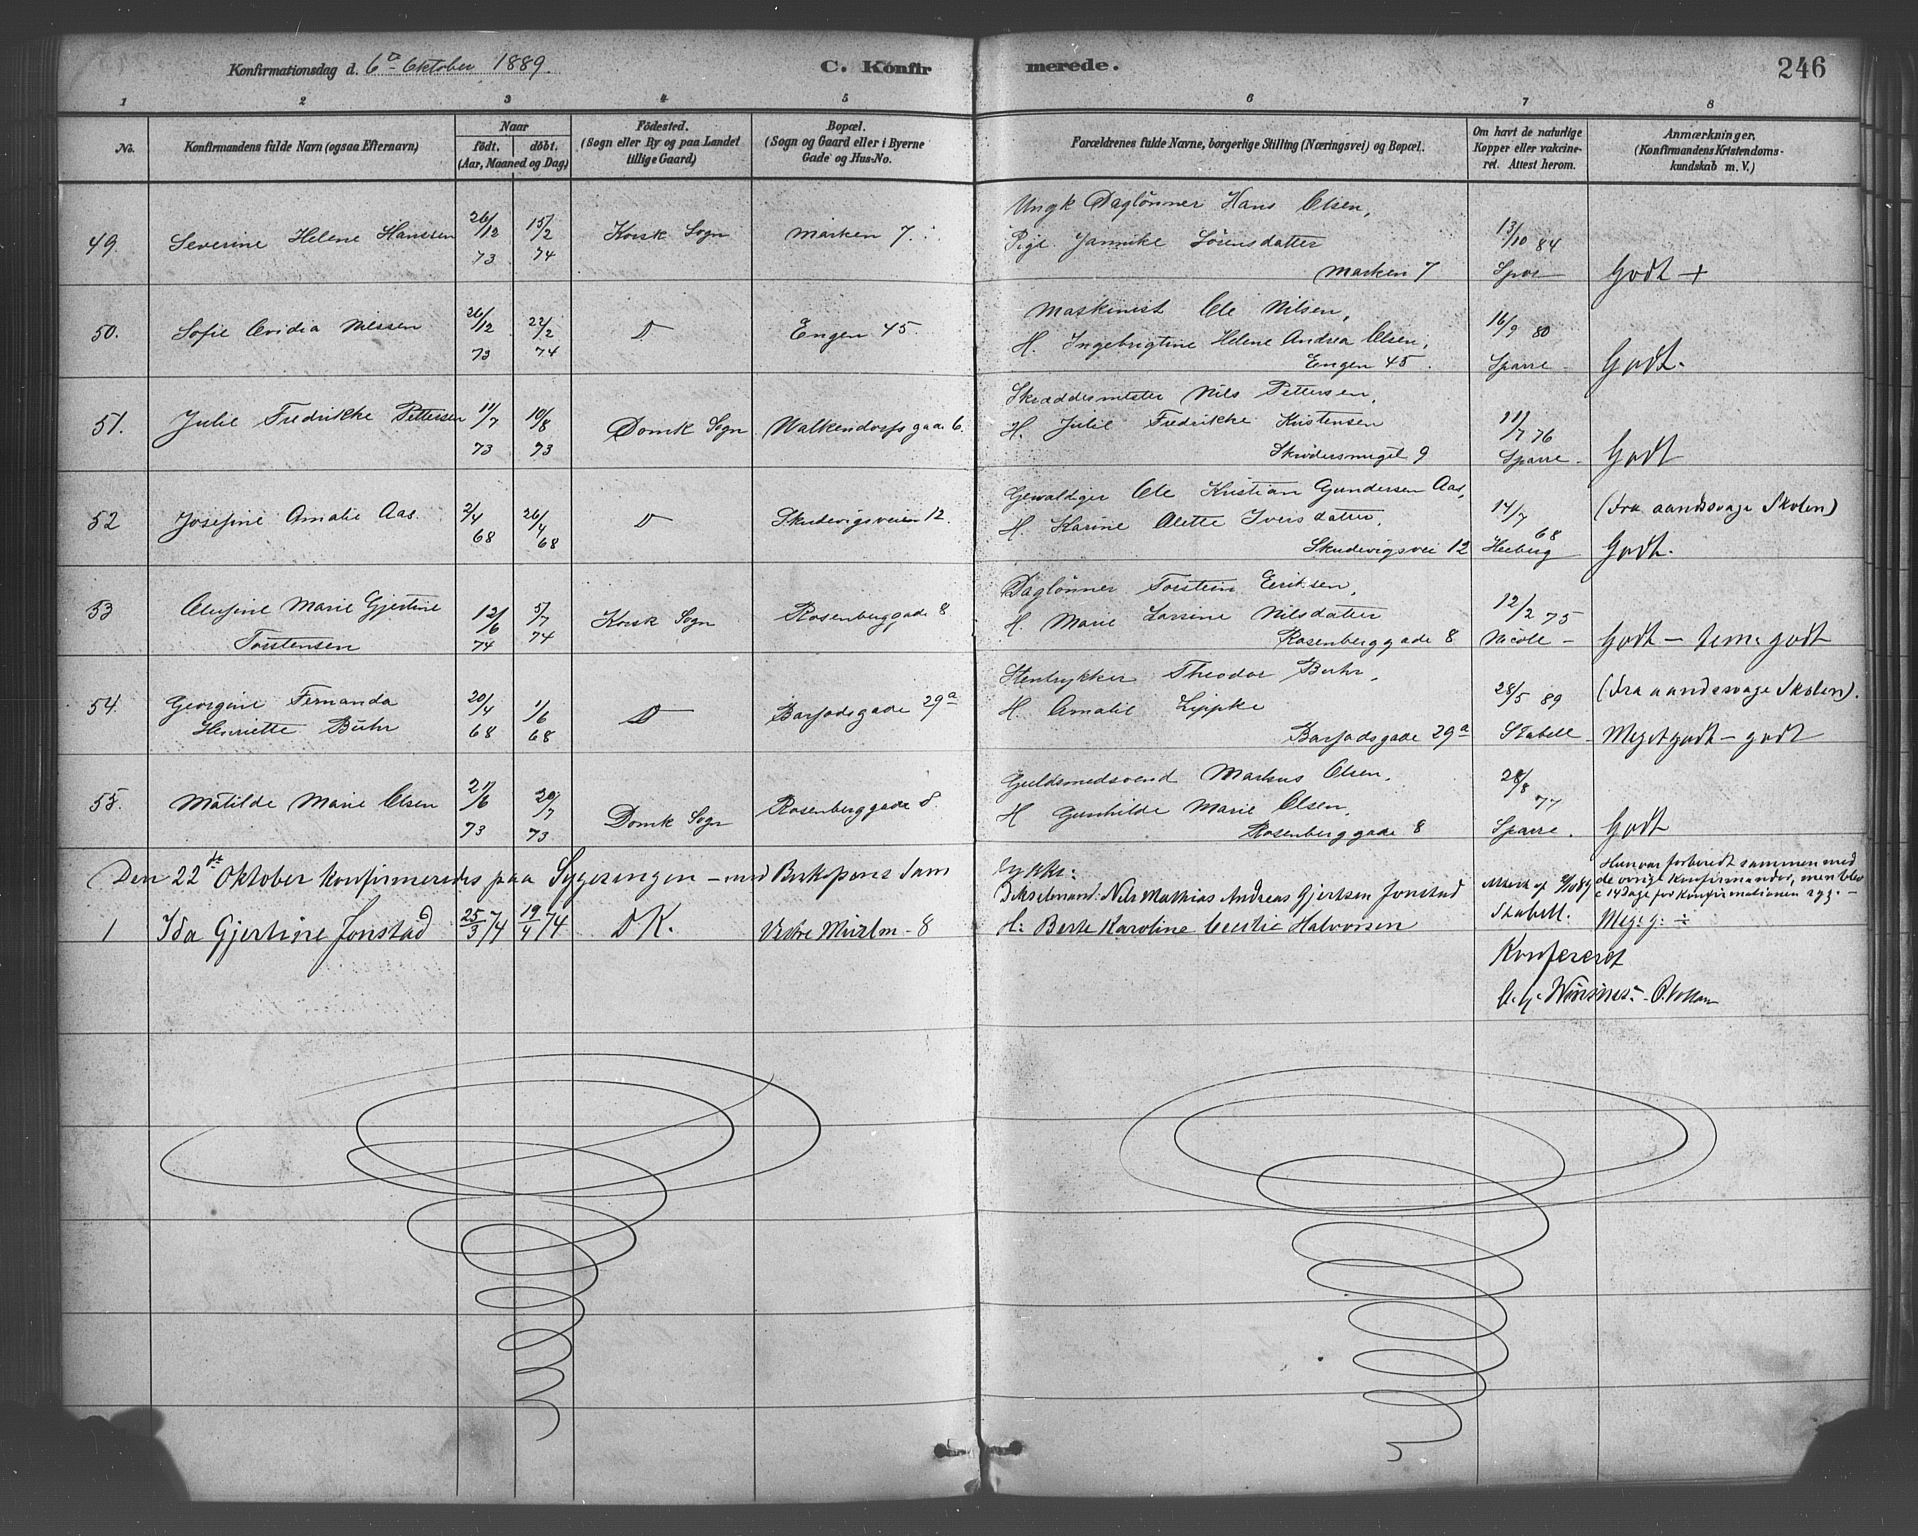 Konfirmationsdag d. 6te Oktober 1889. C. Konfirmerede. 246
1 2 3 4 5 6 7 8
No. Konfirmandens fulde Navn (ogsaa Efternavn) Naar født. døbt. (Aar, Maaned og Dag) Fødested. (Sogn eller By og paa Landet tillige Gaard) Bopæl. (Sogn og Gaard eller i Byerne Gade og Hus-No. Forældrenes fulde Navne, borgerlige Stilling (Næringsvei) og Bopæl. Om havt de naturlige Kopper eller vakcineret. Attest herom. Anmærkninger, (Konfirmandens Kristendomskundskab m. V.)
49. Severine Helene Hanssen 26/12 73 15/2 74 Korsk Sogn Marken 7.
Ungk Daglønner Hans Olsen,
Pige Jannike Sørensdatter
Marken 7
13/10 84
Godt +
50. Sofie Ovidia Nilssen 26/12 73 22/2 74 D Engen 45.
Maskinist Ole Nilsen,
H. Ingebrigtine Helene Andrea Olsen,
Engen 45.
16/9 80
Sparre
Godt.
51. Julie Fredrikke Pettersen 11/7 73 10/8 73 Domk Sogn Walkendorfsgade 6.
Skræddermester Nils Pettersen,
H. Julie Fredrikke Kristensen
9
11/7 76
Sparre
Godt
52 Josefine Amalie Aas 2/4 68 26/4 68 D Skudevigsveien 12.
Gevaldiger Ole Kristian Gundersen Aas,
H. Karine Olette Iversdatter,
Skudevigsvei 12
14/7 68
Heiberg
(fra aandssvage Skolen)
Godt.
53 Olufine Marie Gjertine
Torstensen
12/6 74 5/7 74 Korsk Sogn Rosenberggade 8
Daglønner Torstein Eriksen,
H. Marie Larsine Nilsdatter
Rosenberggade 8
12/2 75
Nicole -
Godt - tem: godt
54. Georgine Fernanda
Henriette Buhr
20/4 68 1/6 68 D Baryadsgade 29a
Stentrykker Theodor Buhr,
H. Amalie Lippke
Baryadsgade 29a
28/5 89
Stabell
(fra aandssvage Skolen).
Meget godt - godt
55. Matilde Marie Olsen 21/6 73 20/7 73 Domk Sogn Rosenberggade 8.
Guldsmedsvend Markus Olsen,
H Gunhilde Marie Olsen,
Rosenberggade 8
28/8 77
Sparre.
Godt
Den 22de Oktober konfirmeredes paa Sygesengen - med Biskopens Samtykke:
1 Ida Gjertine Jonstad 25/3 74 19/4 74 DK. Vestre Murlm - 8
Nils Mathias Andreas Gjertsen Jonstad
H: Berte Karoline Cecilie Halvorsen
Attest af 9/10 89
Stabell.
Hun var forberedt sammen med
de øvrige Konfirmander, men blev
c 14 Dage før Konfirmationen syg. -
Meg: g: ÷
Konfereret